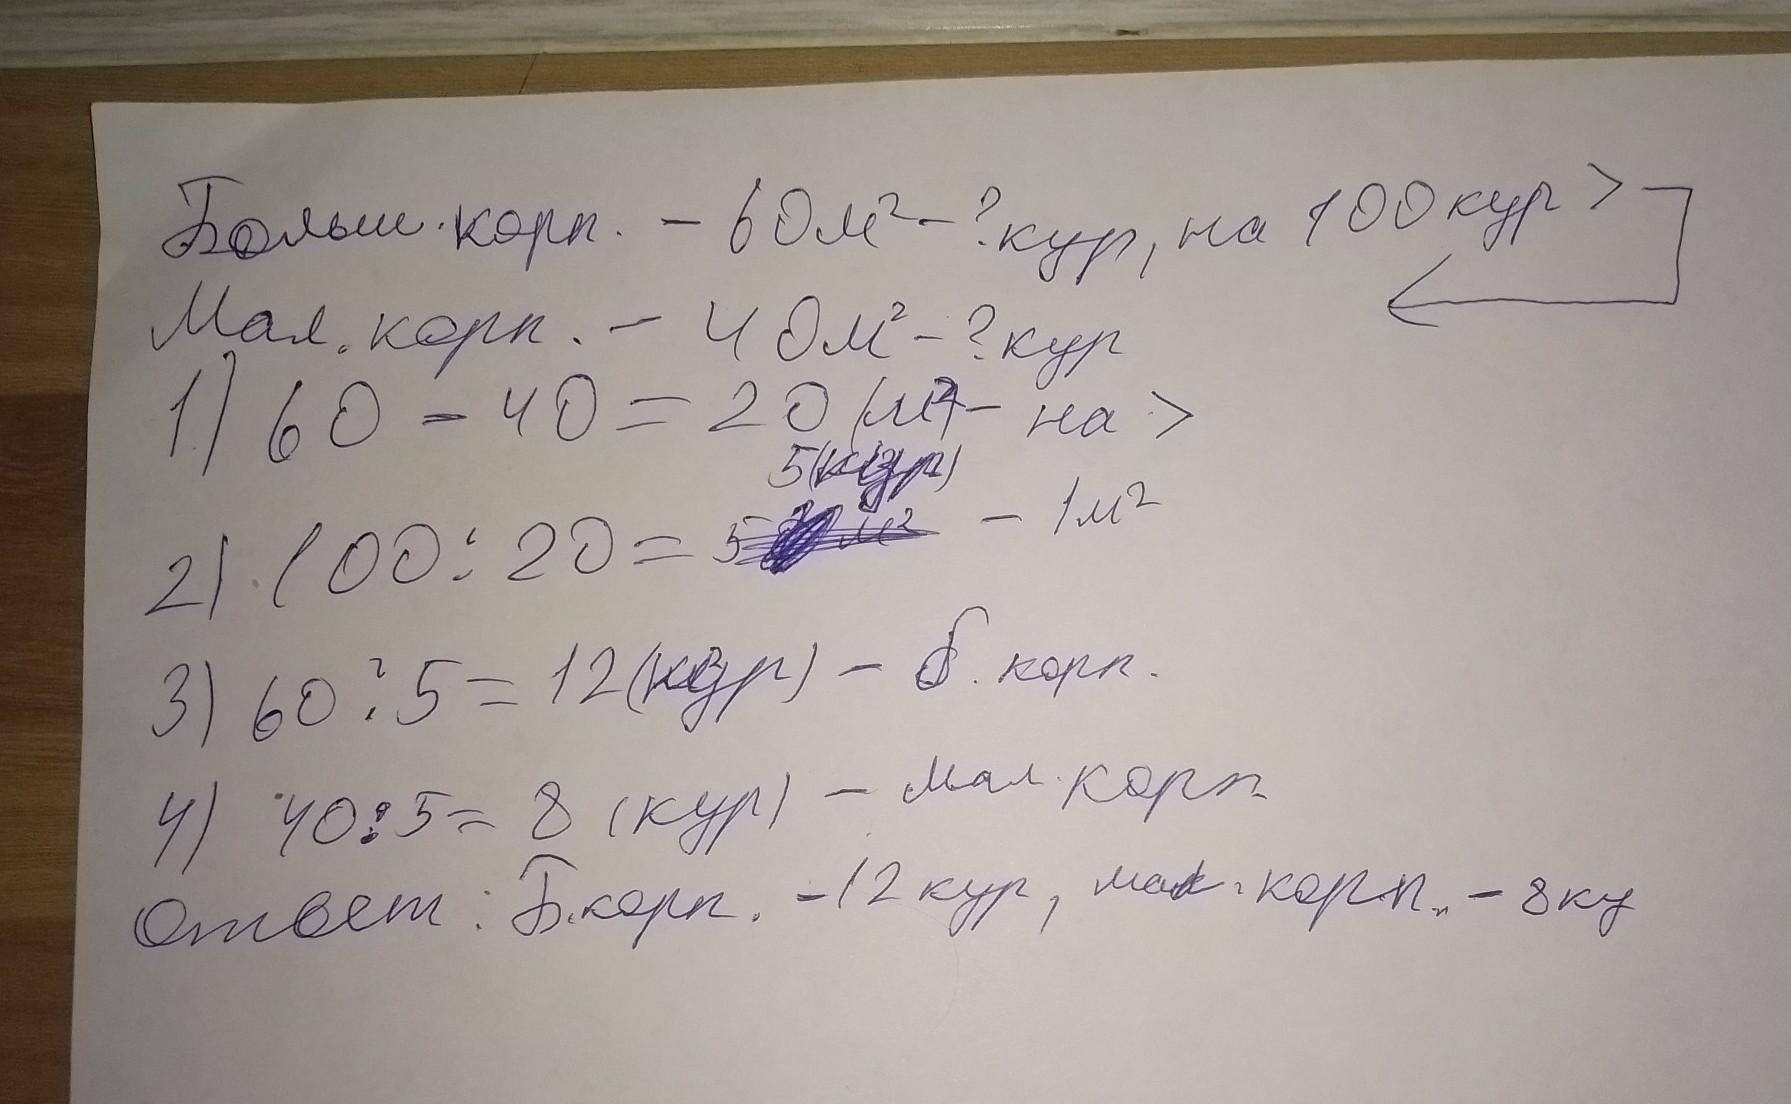 Больш. корп. - 60м² - ? кур, на 100 кур >
Мал. корп. - 40м² - ? кур
1) 60 - 40 = 20 (м²) - на >
5 (кур)
2) 100 : 20 = 5 м² - 1м²
3) 60 : 5 = 12 (кур) - б. корп.
4) 40 : 5 = 8 (кур) - мал. корп
Ответ: Б. корп. - 12 кур, мал. корп. - 8 ку